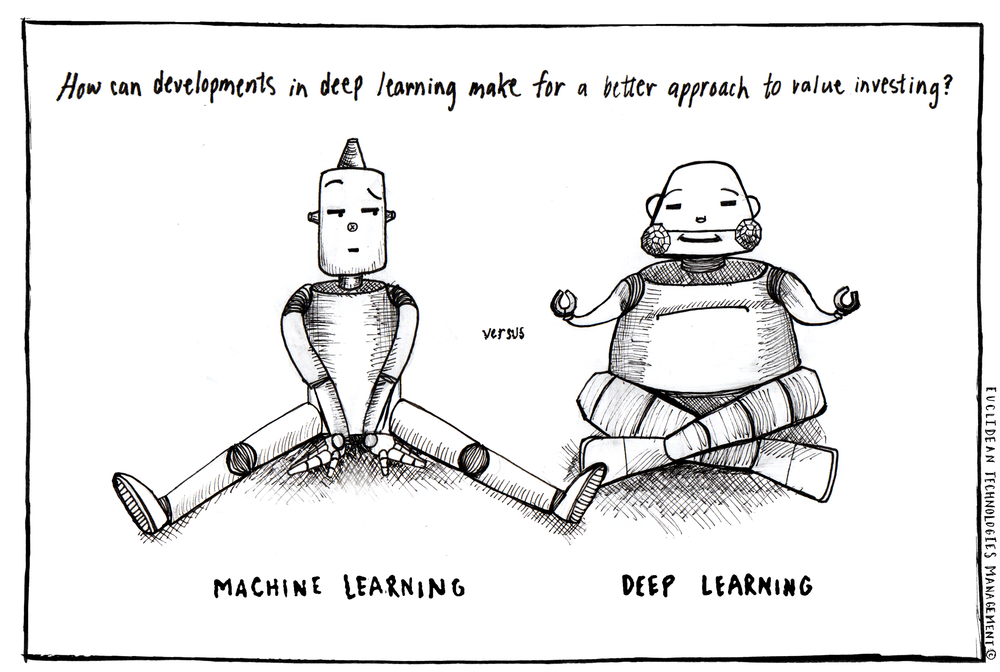 How can developments in deep learning make for a better approach to value investing?
versus
MACHINE LEARNING
DEEP LEARNING
EUCLIDEAN TECHNOLOGIES MANAGEMENT ©